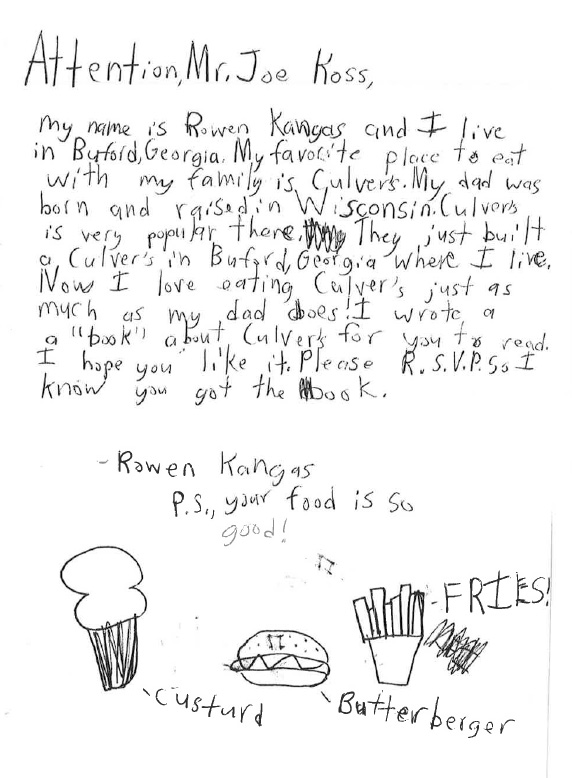 Attention, Mr. Joe Koss,
my name is Rowen Kangas and I live
in Buford, Georgia. My favorite place to eat
with my family is Culver's. My dad was
born and raised in Wisconsin. Culver's
is very popular there. They just built
a Culver's in Buford, Georgia where I live.
Now I love eating Culver's just as
much as my dad does! I wrote a
a "book" about Culver's for you to read.
I hope you like it. Please R.S.V.P. So I
know you got the book.
- Rowen Kangas
P.S., your food is so
good!
-FRIES!
custurd
Butterberger